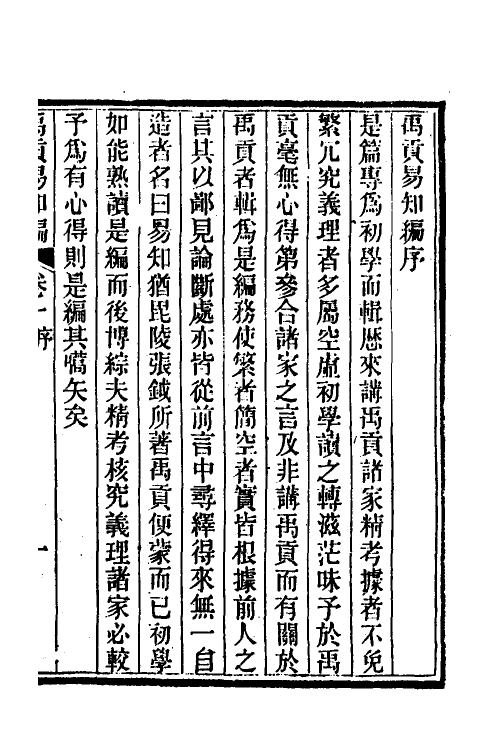 禹貢易知編序
是篇專爲初學而輯歷來講禹貢諸家精考據者不免
繁冗究義理者多屬空虛初學讀之轉滋茫昧予於禹
貢毫無心得第參合諸家之言及非講禹貢而有關於
禹貢者輯爲是編務使繁者簡空者實皆根據前人之
言其以鄙見論斷處亦皆從前言中尋繹得來無一自
造者名曰易知猶毘陵張鉞所著禹貢便蒙而已初學
如能熟讀是編而後博綜夫精考核究義理諸家必較
予爲有心得則是編其嚆矢矣
禹貢易知編 卷十序 一